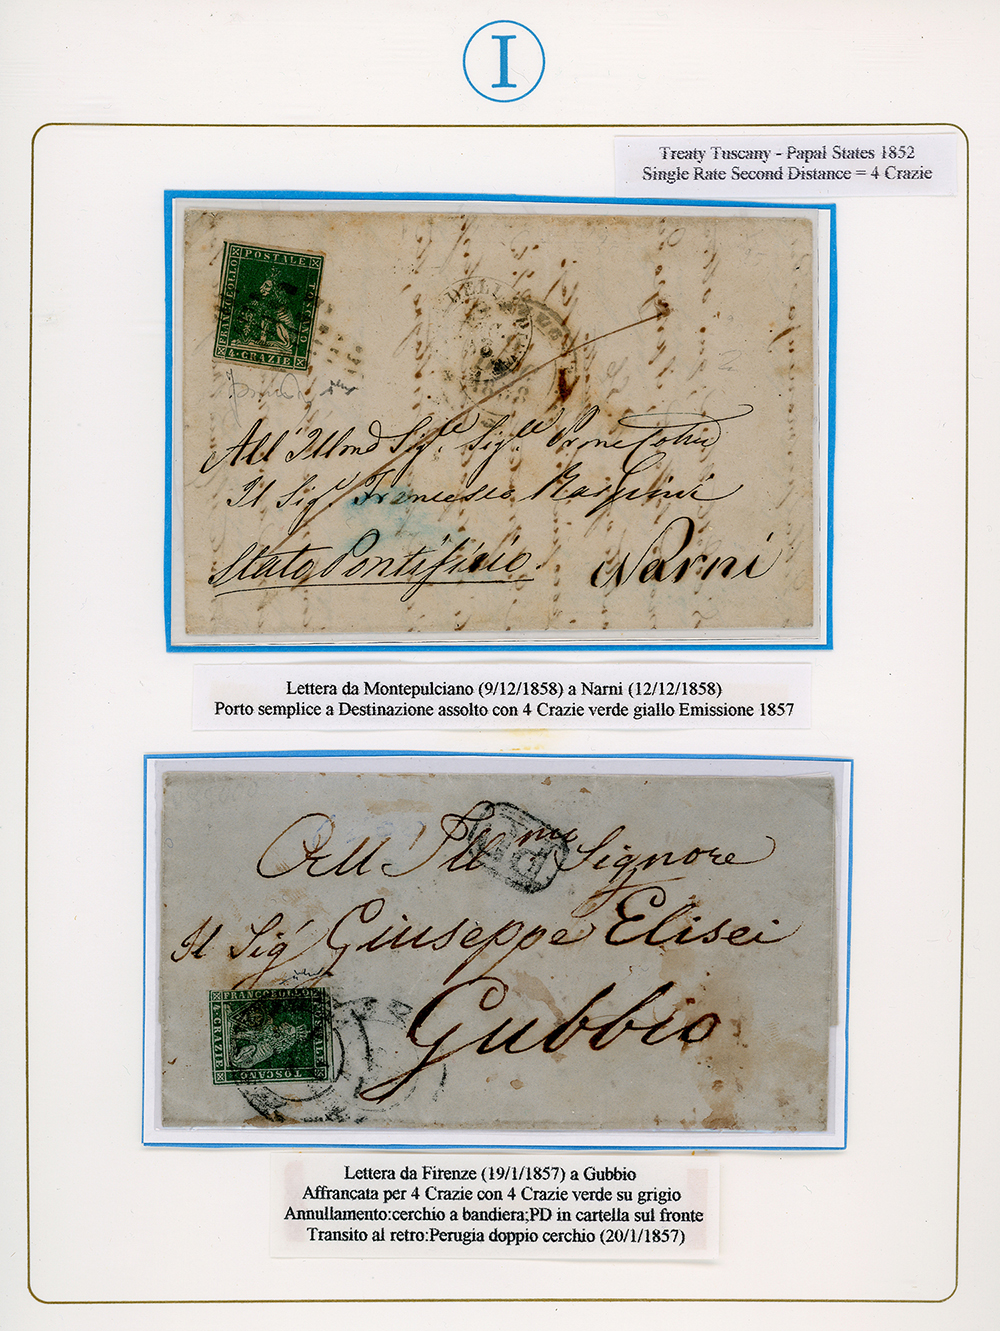 I
Treaty Tuscany - Papal States 1852
Single Rate Second Distance = 4 Crazie
POSTALE
FRANCOBOLLO
TOSCANO
4·CRAZIE
All' Illmo Sigre Sigre
Il Sigr Francesco
Stato Pontificio Narni
Lettera da Montepulciano (9/12/1858) a Narni (12/12/1858)
Porto semplice a Destinazione assolto con 4 Crazie verde giallo Emissione 1857
PD
All Illmo Signore
Il Sigr Giuseppe Elisei
Gubbio
FRANCOBOLLO
4·CRAZIE
POSTALE
TOSCANO
Lettera da Firenze (19/1/1857) a Gubbio
Affrancata per 4 Crazie con 4 Crazie verde su grigio
Annullamento:cerchio a bandiera;PD in cartella sul fronte
Transito al retro:Perugia doppio cerchio (20/1/1857)